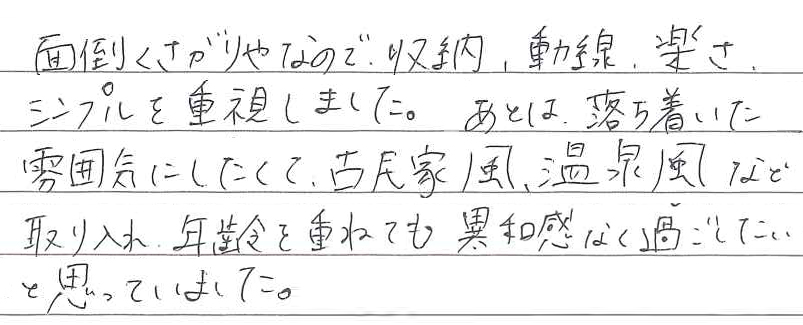 面倒くさがりやなので、収納、動線、楽さ、
シンプルを重視しました。 あとは、落ち着いた
雰囲気にしたくて、古民家風、温泉風など
取り入れ、年齢を重ねても異和感なく過ごしたい
と思っていました。